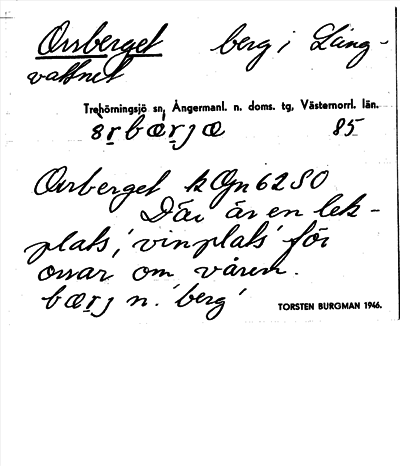 Orrberget berg i Lång-
vattnet
Trehörningsjö sn, Ångermanl. n. doms. tg, Västernorrl. län.
85
Orrberget kGn62SO
Där är en lek-
plats, 'vinplats' för
orrar om våren.
bærj n. 'berg'
TORSTEN BURGMAN 1946.